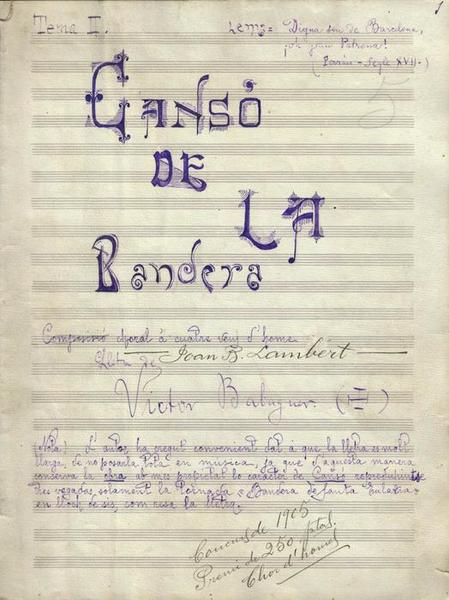 1
Tema I.
Lema = Digna sou de Barcelona,
¡oh gran Patrona!
(Ferrán - Segle XVII -)
Cansó
de
la
Bandera
Composició choral á cuatre veus d'home
Joan B. Lambert
Lletra de
Victor Balaguer. (
(Nota) L'autor ha cregut convenient dat á que la lletra es molt
llarga, de no posarla tota en musica, ja que d'aquesta manera
conserva la obra ab mes propietat lo carácter de Cansó reproduhintse
tres vegadas solament la tornada "Bandera de Santa Eularia"
en lloch de sis, com cusa la lletra.
Concurs de 1905
Premi de 250 ptas.
Chor d'homes